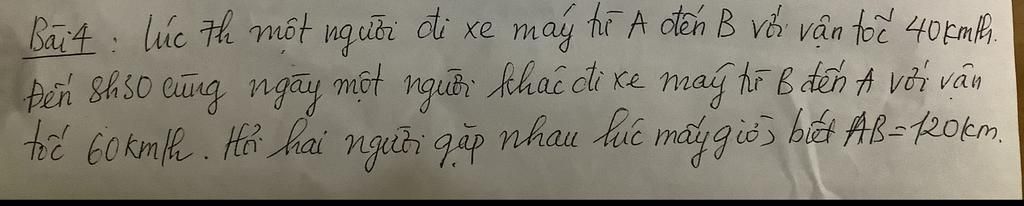 Bài 4 : lúc 7h một người đi xe máy từ A đến B với vận tốc 40km/h.
Đến 8h30 cùng ngày một người khác đi xe máy từ B đến A với vận
tốc 60km/h. Hỏi hai người gặp nhau lúc mấy giờ, biết AB=120km.